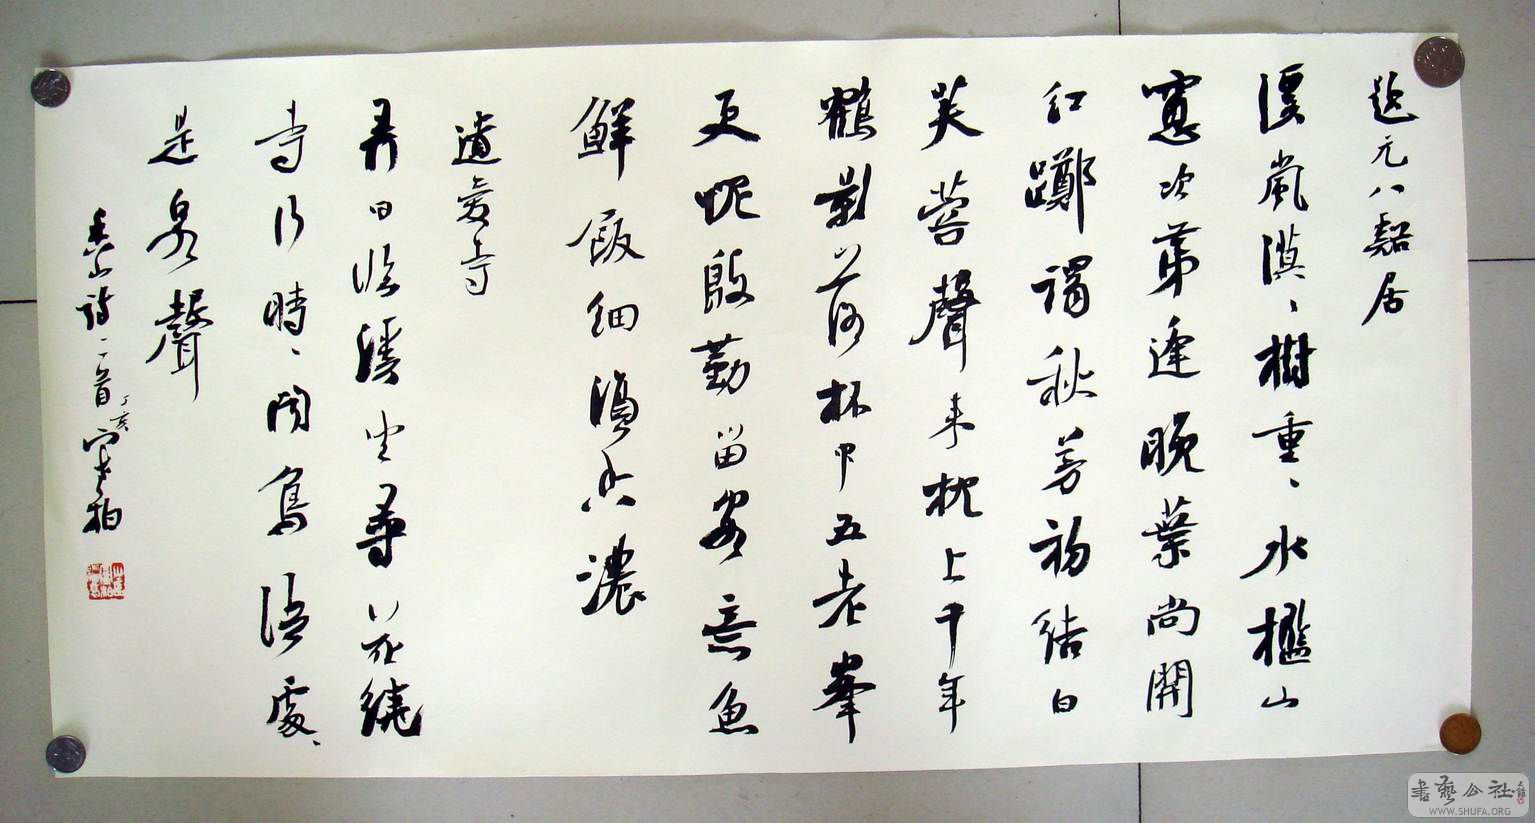 題元八谿居
溪嵐漠、樹重、水檻山
窓次第逢晚葉尚開
紅躑躅秋芳初結白
芙蓉聲来枕上千年
鶴影落杯中五老峯
更愧殷勤留客意魚
鮮飯細酒香濃
遺愛寺
弄日临溪坐尋花繞
寺行時、聞鳥語處、
是泉聲
香山詩二首 丁亥
書藝公社
WWW.SHUFA.ORG